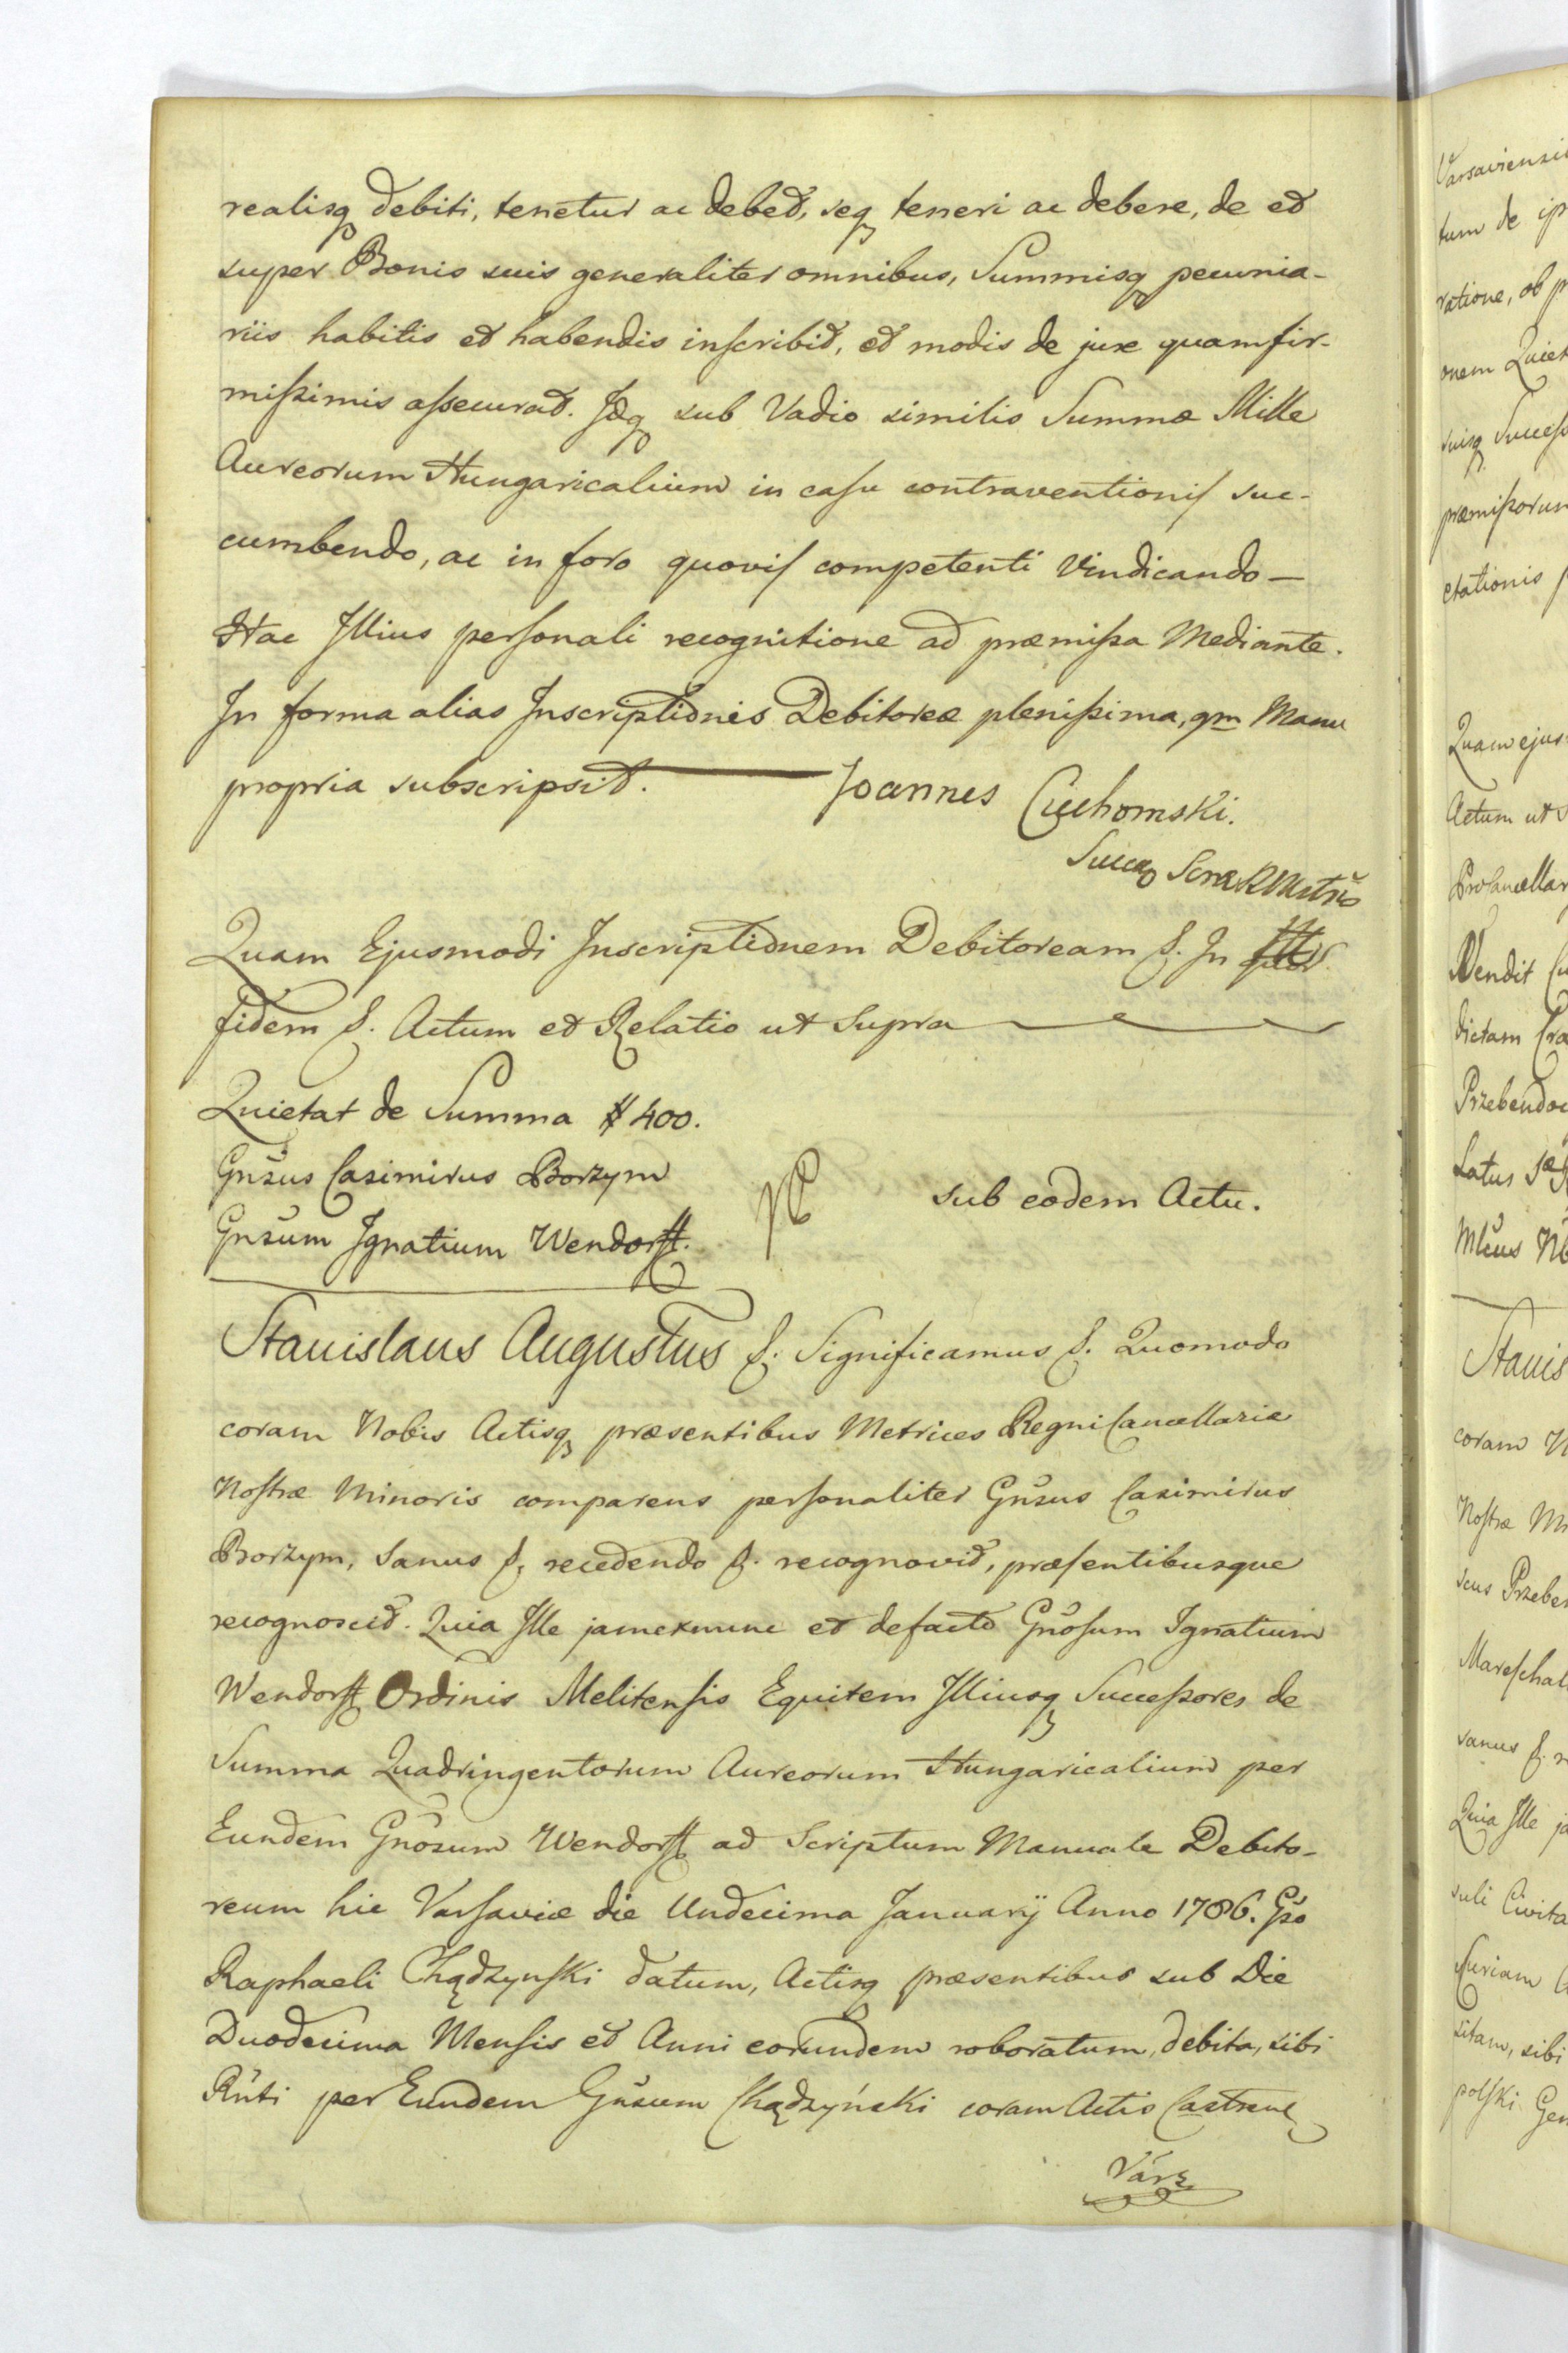 realisq debiti, tenetur ac debet, seq teneri ac debere, de et
super Bonis suis generaliter omnibus, Summisq pecunia-
riis habitis et habendis inscribit, et modis de jure quamfir-
missimis assecurat. Idq sub Vadio similis Summæ Mille
Aureorum Hungaricalium in casu contraventionis suc-
cumbendo, ac in foro quovis competenti Vindicando —
Hac Illius personali recognitione ad præmissa Mediante.
In forma alias Inscriptionis Debitoreæ plenissima, qm Manu
propria subscripsit. — Joannes Ciechomski.
Quam Ejusmodi Inscriptionem Debitoream &. In
fidem &. Actum et Relatio ut supra
Quietat de Summa # 400.
Gnsus Casimirus Borzym
sub eodem Actu.
Gnsum Ignatium Wendorff.
Stanislaus Augustus &. Significamus &. Quomodo
coram Nobis Actisq præsentibus Metrices Regni Cancellariæ
Nostræ Minoris comparens personaliter Gnsus Casimirus
Borzym, Sanus &. recedendo &. recognovit, præsentibusque
recognoscit. Quia Ille jamexnunc et defacto Gnosum Ignatium
Wendorff Ordinis Melitensis Equitem Illiusq Successores de
Summa Quadringentorum Aureorum Hungaricalium per
Eundem Gnosum Wendorff ad Scriptum Manuale Debito-
reum hic Varsaviæ die Undecima Januarÿ Anno 1786. Gso
Raphaeli Chądzynski datum, Actisq præsentibus sub Die
Duodecima Mensis et Anni eorundem roboratum, debita, sibi
Rnti per Eundem Gnsum Chądzyński coram Actis Castrens
Vars
Varsaviensi
tum de ip
ratione, ob p
onem Quiet
suisq Success
præmissorum
ctationis p
Quam ejus
Actum ut s
Procancellar
Vendit
dictam
Przebendow
Latus
Stanis
coram N
Nostræ Mi
scus Przeben
Mareschal
sanus &. r
Quia Ille ja
suli Civita
Curiam
sitam, sibi
polski Gen